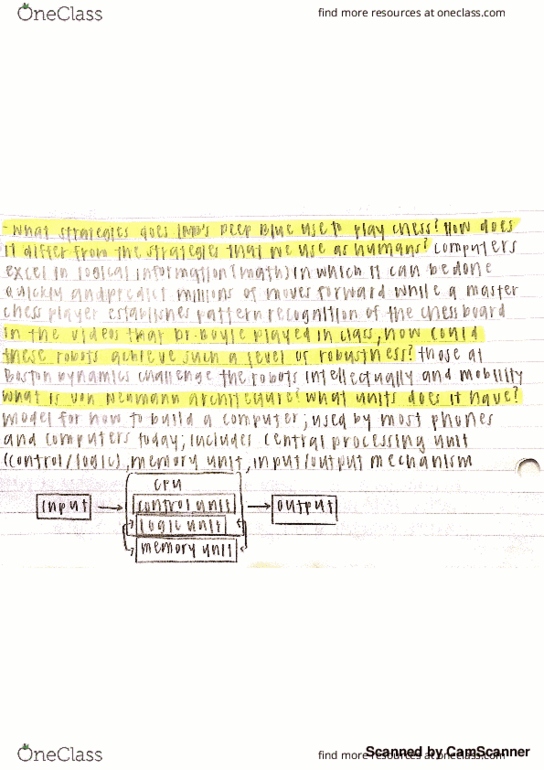 OneClass
find more resources at oneclass.com
-what strategies does IBM's Deep Blue use to play chess? How does
it differ from the strategies that we use as humans? computers
excel in logical information (math) in which it can be done
quickly and predict millions of moves forward while a master
chess player establishes pattern recognition of the chessboard
in the videos that Dr. Boyle played in class, how could
these robots achieve such a level of robustness? those at
Boston Dynamics challenge the robots intellectually and mobility
what is von Neumann architecture? what units does it have?
model for how to build a computer; used by most phones
and computers today; includes central processing unit
(control/logic), memory unit, input/output mechanism
CPU
input
control unit
output
logic unit
memory unit
OneClass
find more resources at oneclass.com
Scanned by CamScanner